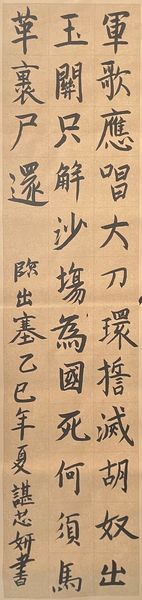 軍歌應唱大刀環誓滅胡奴出
玉關只解沙場為國死何須馬
革裹尸還
臨出塞乙巳年夏諶芯妍書